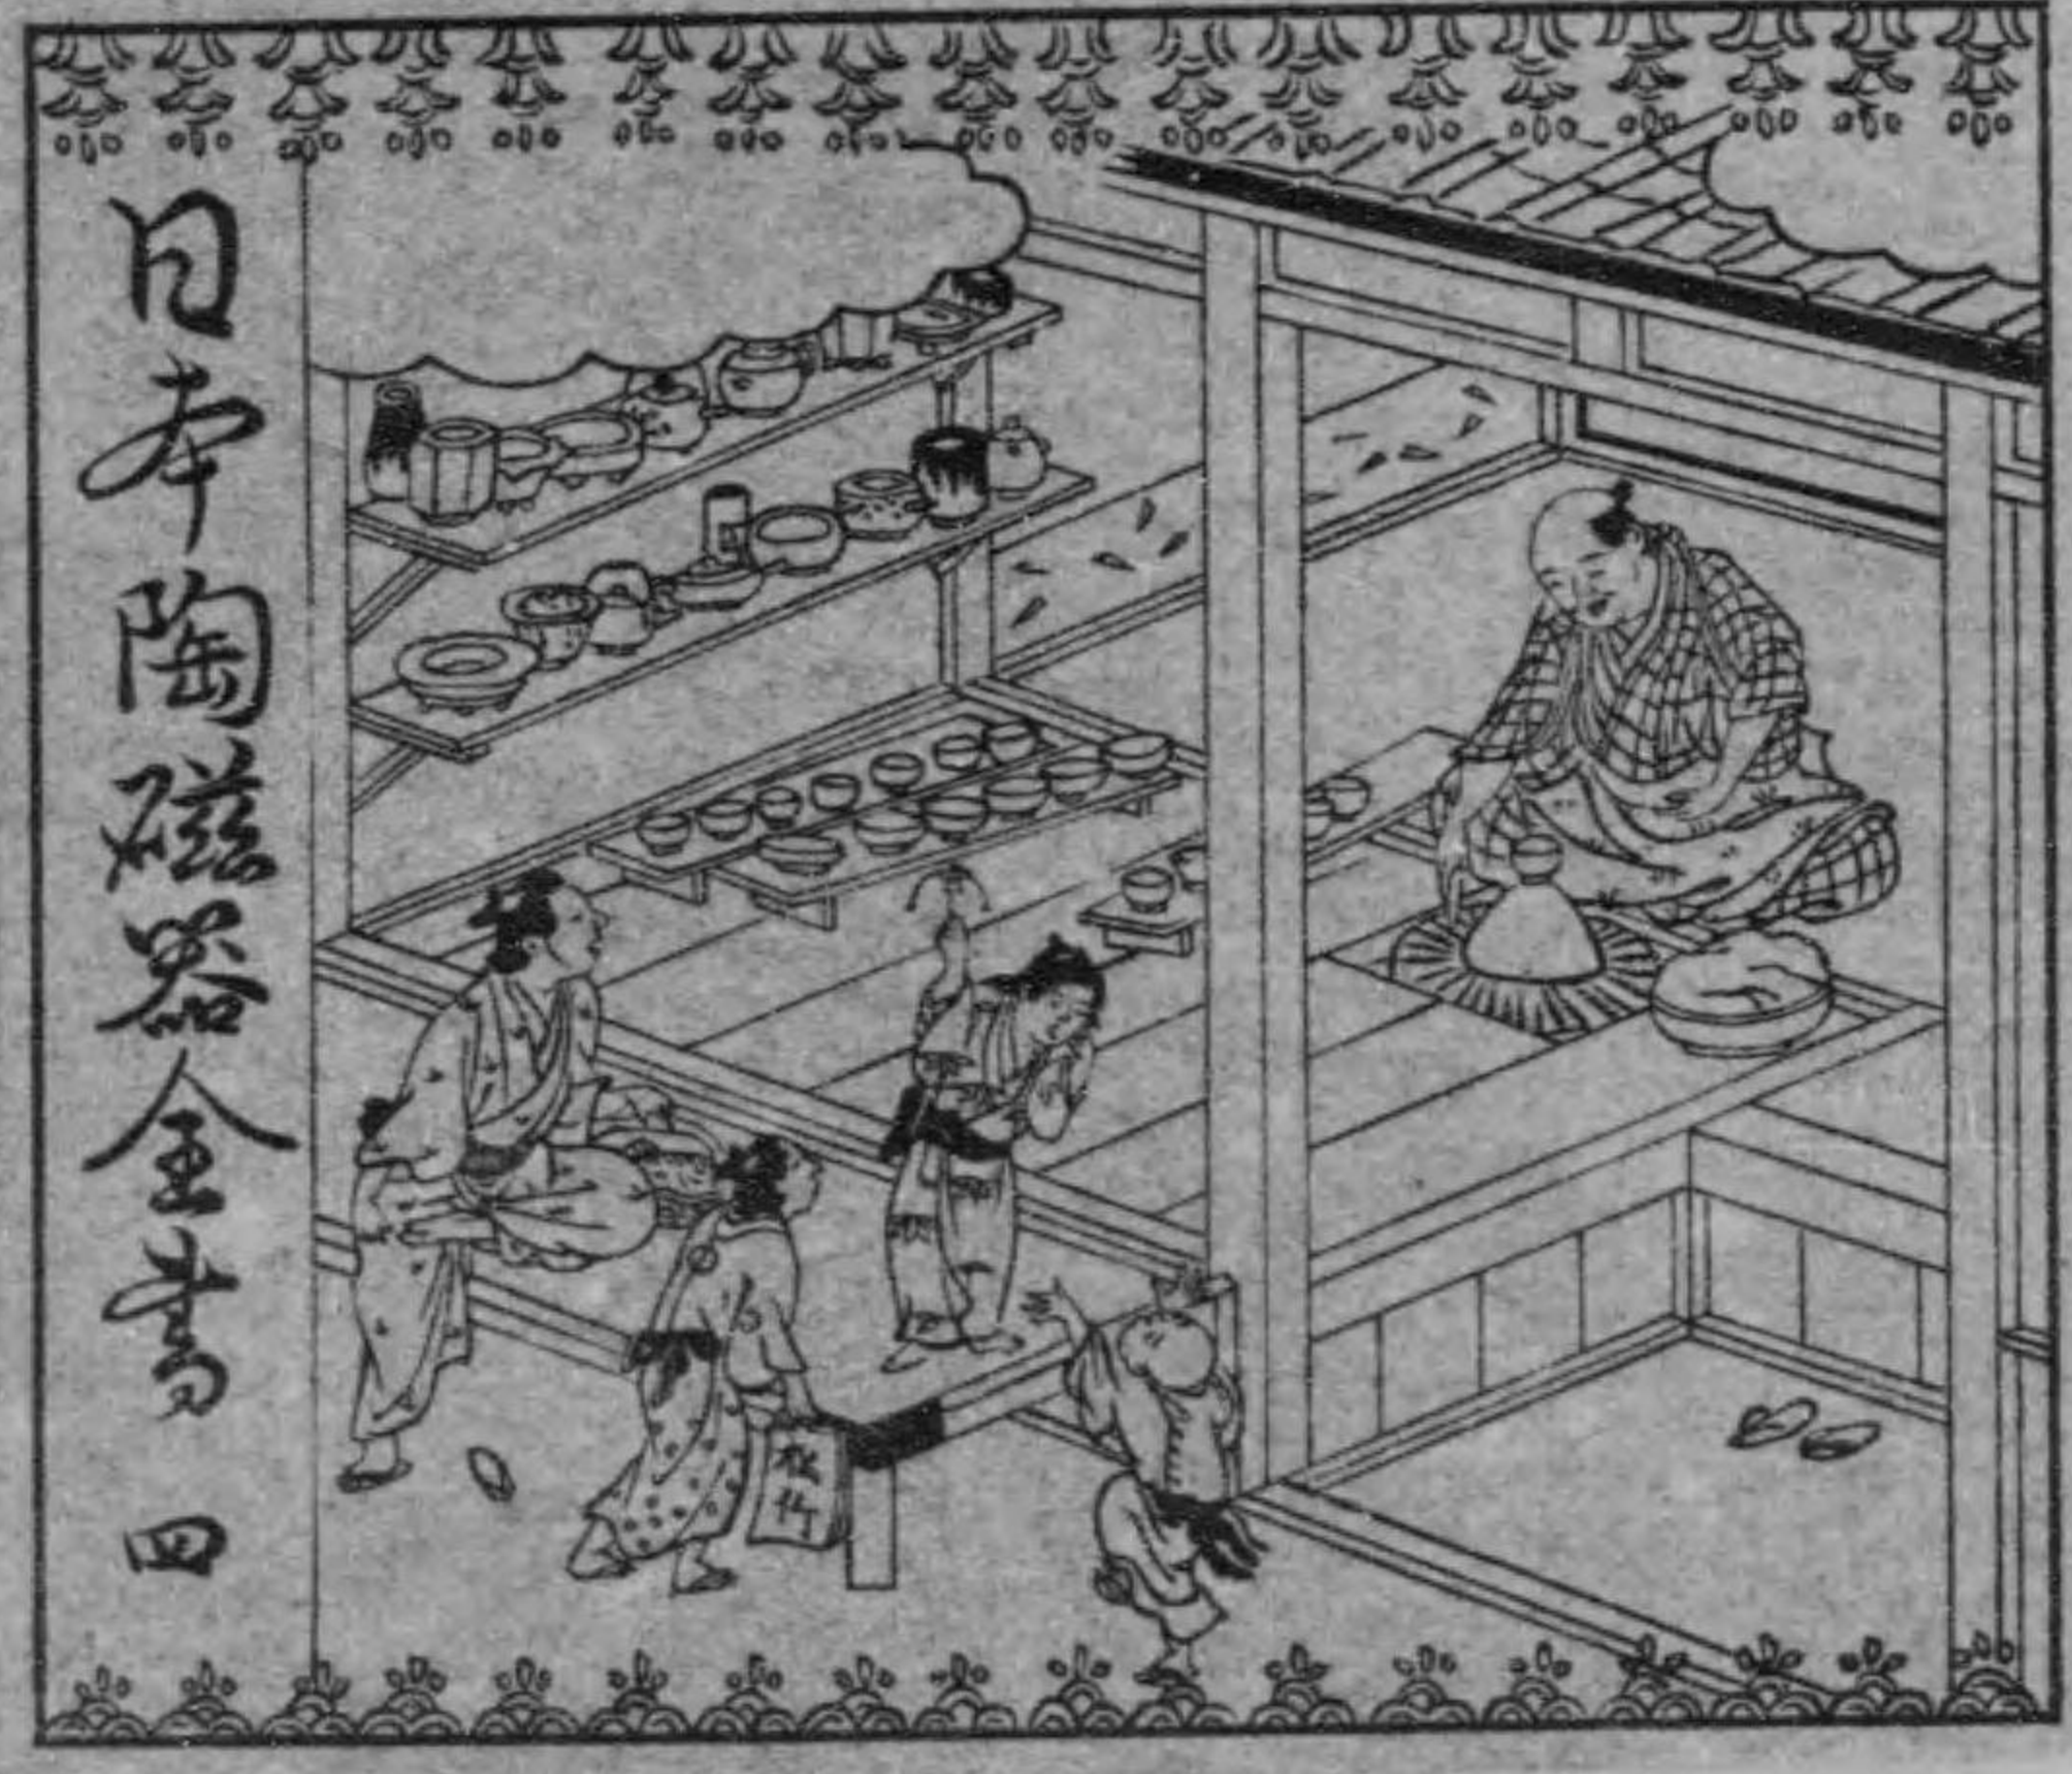 日本陶磁器全書 四
松竹